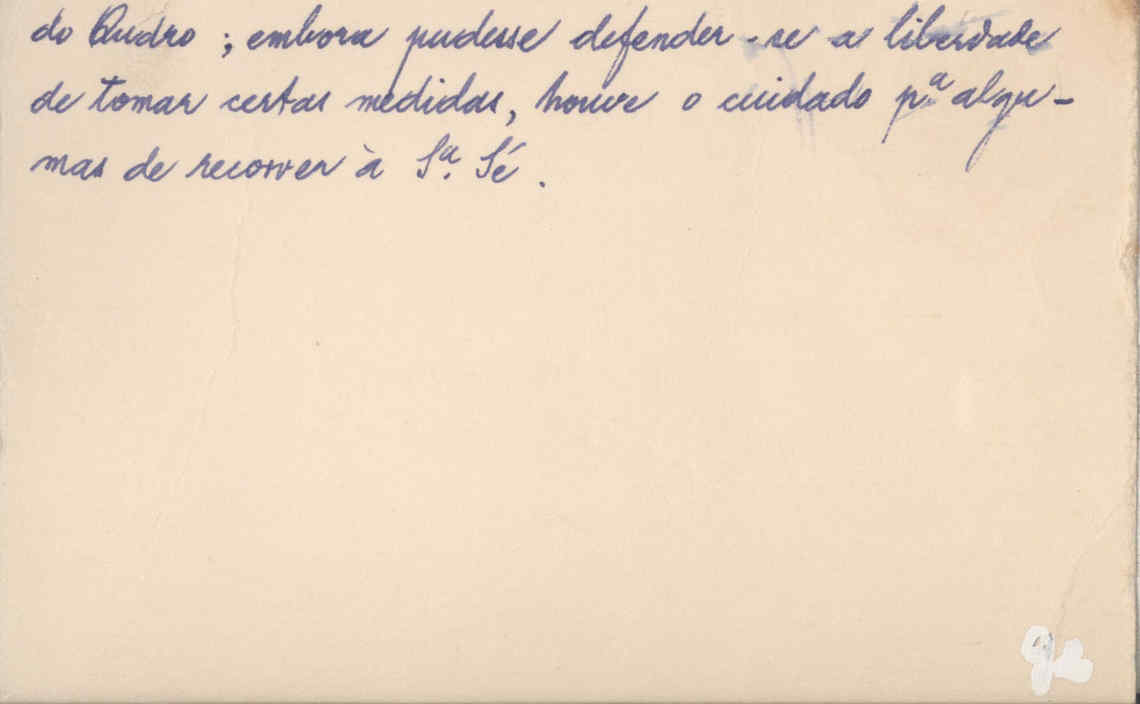 do Quadro ; embora pudesse defender-se a liberdade
de tomar certas medidas, houve o cuidado pª algu-
mas de recorrer à Sª. Sé.